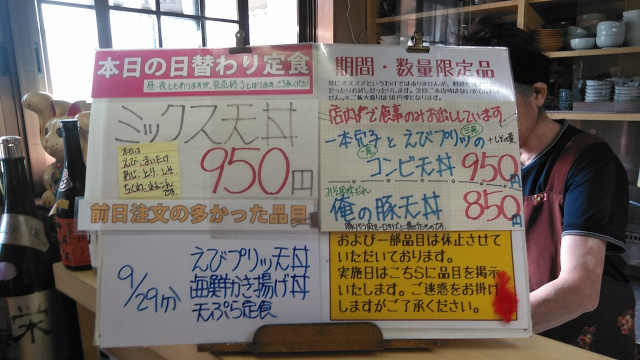 本日の日替わり定食
昼・夜ともありますが、完売終了となります。ご了承ください
ミックス天丼
950円
本日は
えび、まいたけ
あじ、とり、しそ、
ちくわ、れんこん
です。
前日注文の多かった品目
9/29分
えびプリッ天丼
海鮮かき揚げ丼
天ぷら定食
期間・数量限定品
店内で食事のみお出ししています。
一本穴子とえびプリッの
コンビ天丼 950円
俺の豚天丼 850円
および一部品目は休止させて
いただいております。
実施日はこちらに品目を掲示
いたします。ご迷惑をお掛け
しますがご了承ください。
栄